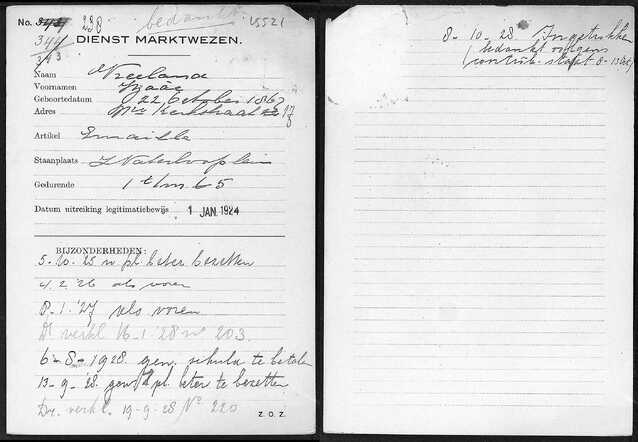 No. 343 238 bedankt 15521
344
343
DIENST MARKTWEZEN.
Naam Vreeland
Voornamen Izaäc
Geboortedatum 22 October 1867
Adres Nwe Kerkstraat 17
Artikel Emaille
Staanplaats Waterlooplein
Gedurende 1 t/m 65
Datum uitreiking legitimatiebewijs 1 JAN. 1924
BIJZONDERHEDEN:
5-10-25 w pl. beter bezetten
4.2.'26 als voren
8-1-'27 als voren
Dr verkl 16-1-'28 No 203.
6-8-1928. gew. schuld te betalen
13-9-'28. gew. pl. beter te bezetten
Dr. verkl. 19-9-28 No 220
Z.O.Z.
8-10-28 Ingetrokken
(bedankt volgens
controle-staat 8-13 Oct)